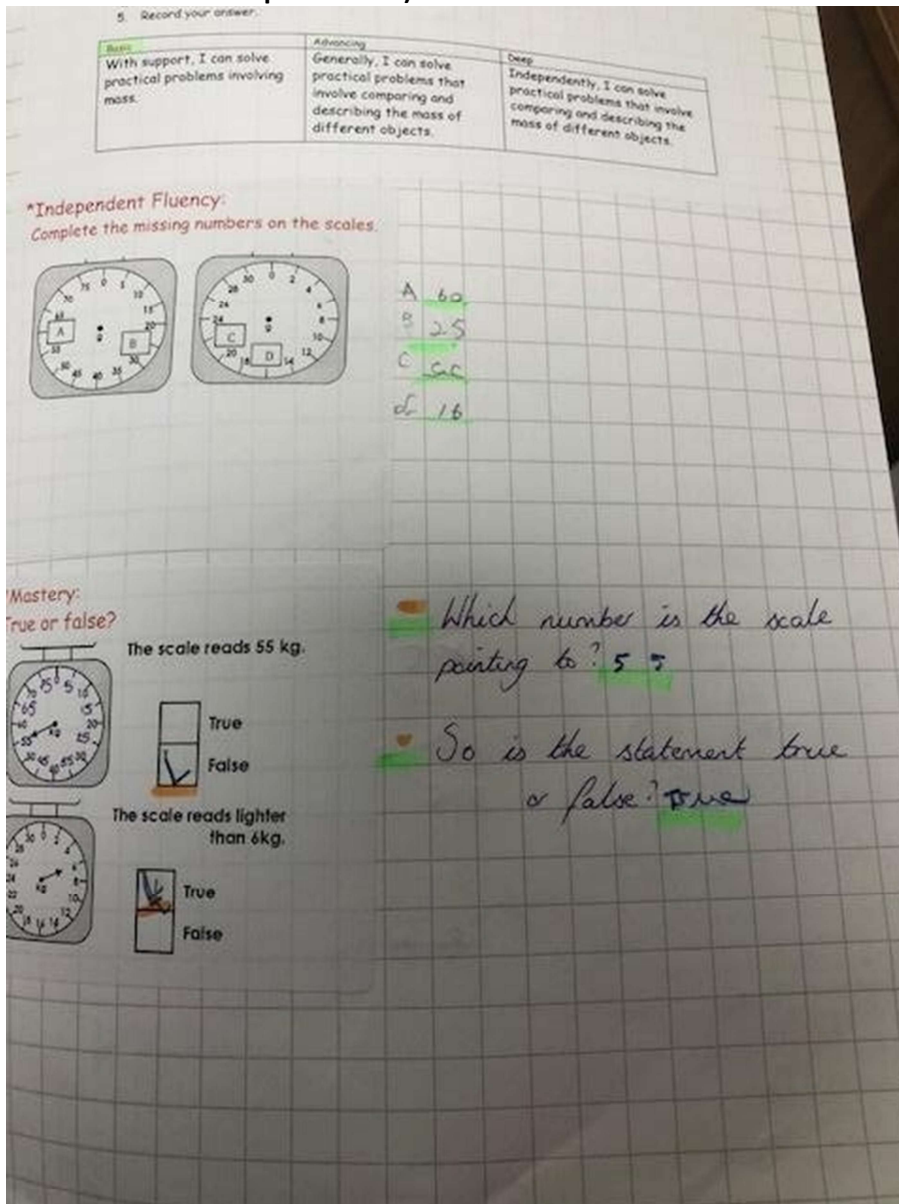 5. Record your answer.
Basic
With support, I can solve
practical problems involving
mass.
Advancing
Generally, I can solve
practical problems that
involve comparing and
describing the mass of
different objects.
Deep
Independently, I can solve
practical problems that involve
comparing and describing the
mass of different objects.
*Independent Fluency:
Complete the missing numbers on the scales.
0 5 10 15 20 B 30 35 40 45 50 55 A 65 70 75
g
0 2 4 6 8 10 12 14 D 18 20 C 24 26 28 30
g
A 60
B 25
C
d 16
Mastery:
True or false?
The scale reads 55 kg.
True
False
The scale reads lighter
than 6kg.
True
False
Which number is the scale
pointing to? 55
So is the statement true
or false? True